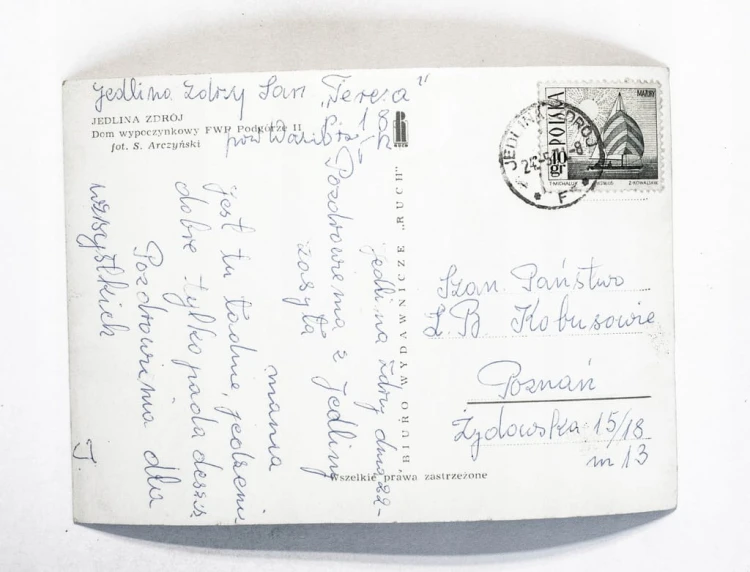 Jedlina Zdrzy San „Teresa”
p. 18
pow Wałbrzych
JEDLINA ZDRÓJ
Dom wypoczynkowy FWP Podgórze II
fot. S. Arczyński
RUCH
BIURO WYDAWNICZE „RUCH”
Wszelkie prawa zastrzeżone
POLSKA
10 gr
MAZURY
JEDLINA ZDRÓJ
F
Jedlina Zdrzy dnia 22-
Pozdrowienia z Jedliny
zasyła
mania
jest tu ładnie, jedzenie
dobre tylko pada deszcz
Pozdrowinia dla
wszystkich
J.
Szan. Państwo
Z B Kobusowie
Poznań
Żydowska 15/18
m 13